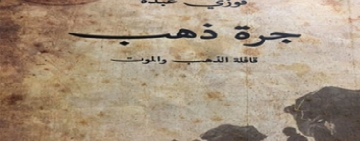 فوزي عبده
جرة ذهب
قافلة الذهب والموت